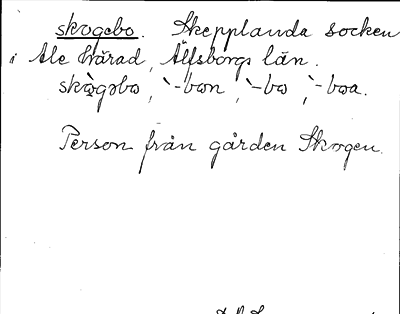 skogebo. Skepplanda socken
i Ale härad, Älfsborgs län.
skògəbω, `-bωn, `-bω, `-bωa.
Person från gården Skogen.